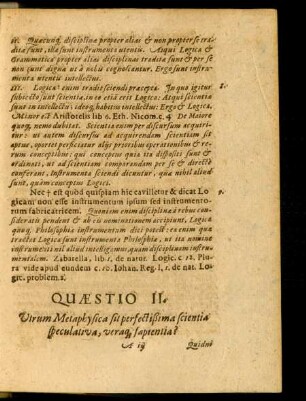 II. Quæcunq; disciplinæ propter aliai & non propter se tra-
ditæ sunt, illæ sunt instrumenta utentis. Atqui Logica &
Grammatica propter alias disciplinas traditæ sunt & per se
non sunt dignæ ut à nobis cognoscantur. Ergo sunt instru-
menta utentis intellectus.
III. Logica enim tradit sciendi præcepta. In quo igitur
subiecto sunt scientiæ, in eo etiã erit Logica: Atqui scientiæ
sunt in intellectu; ideoq; habitus intellectus: Ergo & Logica.
Minor est Aristotelis lib. 6. Eth. Nicom. c. 4. De Maiore
quoq; nemo dubitat.
aptus, oportet
rerum conceptibus:
ordinati, ut ad scientiam comparandam per se & directò
conferant, Instrumenta sciendi dicuntur, qua nihil aliud
sunt, quàm conceptus Logici.
Nec est quòd quispiam hic cavilletur & dicat Lo-
gicam non esse instrumentum ipsum sed instrumento-
rum fabricatricem. Quoniam enim disciplinæ à rebus con-
sideratis pendent & ab iis nominationem accipiunt, Logica
quoq; Philosophiæ instrumentum dici potest: ex eo enim quia
tractet Logica sunt instrumenta Philosophiæ, ut ita nomine
instrumenti nil aliud intelligamus, quàm disciplinam instru-
mentalem. Zabarella, lib. 1. de natur. Logic. c. 12. Plu-
ra vide apud eundem c. 10. Iohan. Reg. l. 1. de nat. Lo-
gic. problem. 2.
QUÆSTIO II.
Utrum Metaphysica sit perfectissima scientia
speculativa, veraq; sapientia?
A iij Quidni